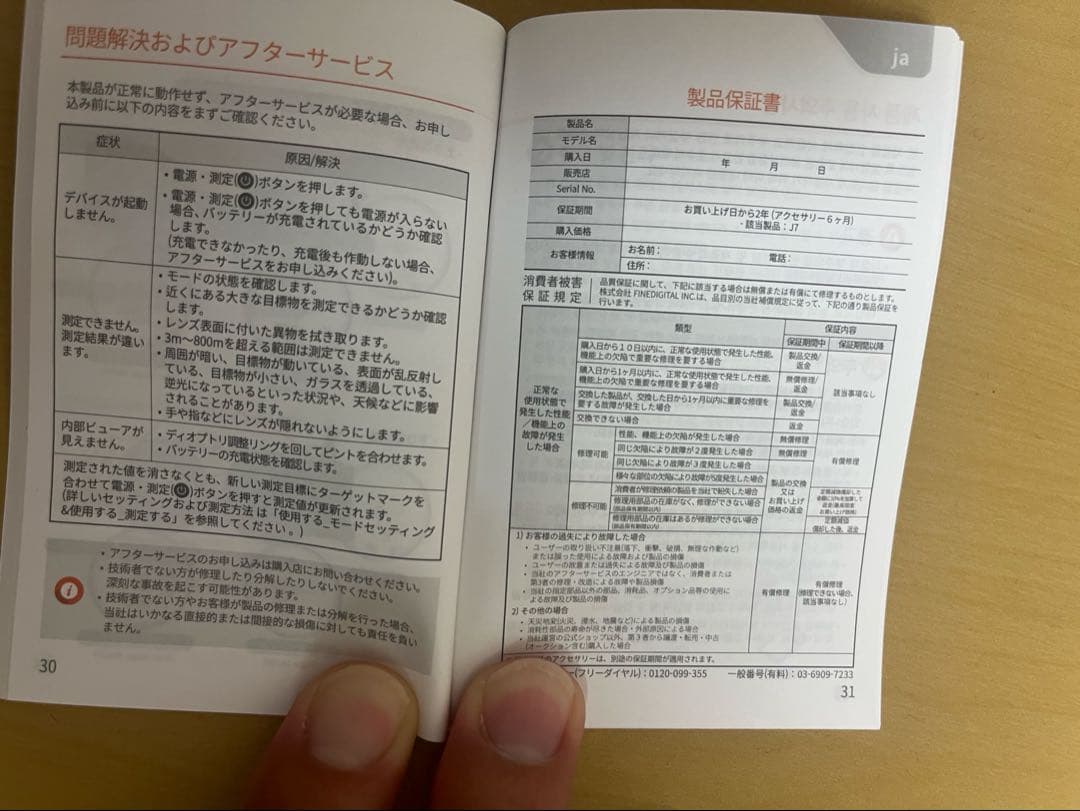 問題解決およびアフターサービス
本製品が正常に動作せず、アフターサービスが必要な場合、お申し
込み前に以下の内容をまずご確認ください。
症状
原因/解決
デバイスが起動
しません。
・電源・測定()ボタンを押します。
・電源・測定()ボタンを押しても電源が入らない
場合、バッテリーが充電されているかどうか確認
します。
(充電できなかったり、充電後も作動しない場合、
アフターサービスをお申し込みください)。
測定できません。
測定結果が違い
ます。
・モードの状態を確認します。
・近くにある大きな目標物を測定できるかどうか確認
します。
・レンズ表面に付いた異物を拭き取ります。
・3m～800mを超える範囲は測定できません。
・周囲が暗い、目標物が動いている、表面が乱反射し
ている、目標物が小さい、ガラスを透過している、
逆光になっているといった状況や、天候などに影響
されることがあります。
・手や指などにレンズが隠れないようにします。
内部ビューアが
見えません。
・ディオプトリ調整リングを回してピントを合わせます。
・バッテリーの充電状態を確認します。
測定された値を消さなくとも、新しい測定目標にターゲットマークを
合わせて電源・測定()ボタンを押すと測定値が更新されます。
(詳しいセッティングおよび測定方法は「使用する_モードセッティング
&使用する_測定する」を参照してください。)
・アフターサービスのお申し込みは購入店にお問い合わせください。
・技術者でない方が修理したり分解したりしないでください。
深刻な事故を起こす可能性があります。
・技術者でない方やお客様が製品の修理または分解を行った場合、
当社はいかなる直接的または間接的な損傷に対しても責任を負い
ません。
30
ja
製品保証書
製品名
モデル名
購入日
年 月 日
販売店
Serial No.
保証期間
お買い上げ日から2年 (アクセサリー 6ヶ月)
- 該当製品 : J7
購入価格
お客様情報
お名前：
電話：
住所：
消費者被害
保証規定
品質保証に関して、下記に該当する場合は無償または有償にて修理するものとします。
株式会社 FINEDIGITAL INC.は、品目別の当社補償規定に従って、下記の通り製品保証を
行います。
類型
保証内容
保証期間中
保証期間以降
正常な
使用状態で
発生した性能
／機能上の
故障が発生
した場合
購入日から１０日以内に、正常な使用状態で発生した性能、
機能上の欠陥で重要な修理を要する場合
製品交換/
返金
購入日から1ヶ月以内に、正常な使用状態で発生した性能、
機能上の欠陥で重要な修理を要する場合
無償修理/
返金
該当事項なし
交換した製品が、交換した日から1ヶ月以内に重要な修理を
要する故障が発生した場合
製品交換/
返金
交換できない場合
修理可能
性能、機能上の欠陥が発生した場合
無償修理
同じ欠陥により故障が２度発生した場合
無償修理
有償修理
同じ欠陥により故障が３度発生した場合
様々な部位の欠陥により故障が5度発生した場合
製品の交換
又は
お買い上げ
価格の返金
修理不可能
消費者が修理依頼の製品を当社で紛失した場合
修理用部品の在庫がなく、修理ができない場合
(部品保有期間以内)
修理用部品の在庫はあるが修理ができない場合
(部品保有期間以内)
定額減価
償却した後、返金
1) お客様の過失により故障した場合
・ ユーザーの取り扱い不注意(落下、衝撃、破損、無理な作動など)
または誤った使用による故障および製品の損傷
・ ユーザーの故意または過失による故障及び製品の損傷
・ 当社のアフターサービスのエンジニアではなく、消費者または
第3者の修理・改造による故障や製品損傷
・ 当社の指定部品以外の部品、消耗品、オプション品等の使用に
よる故障及び製品の損傷
2) その他の場合
・ 天災地変(火災、浸水、地震など)による製品の損傷
・ 消耗性部品の寿命が尽きた場合・外部原因による場合
・ 当社運営の公式ショップ以外、第３者から譲渡・転売・中古
(オークション含む)購入した場合
有償修理
有償修理
(修理できない場合、
該当事項なし)
アクセサリーは、別途の保証期間が適用されます。
(フリーダイヤル)：0120-099-355 一般番号(有料)：03-6909-7233
31